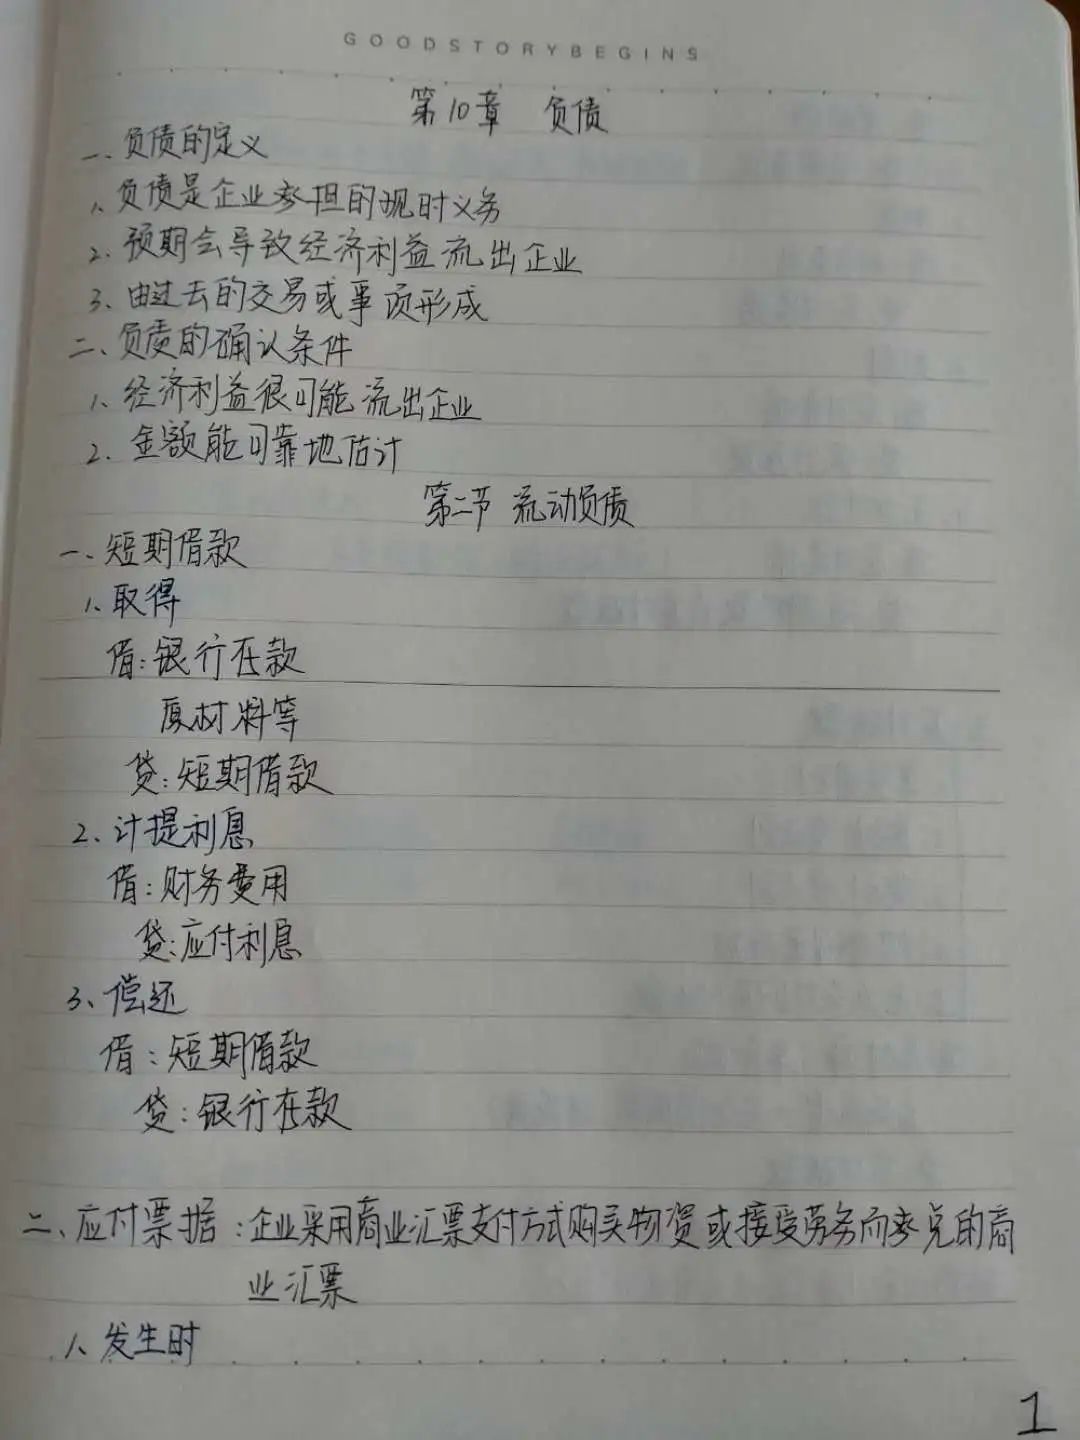 GOODSTORYBEGINS
第10章 负债
一、负债的定义
1、负债是企业承担的现时义务
2、预期会导致经济利益流出企业
3、由过去的交易或事项形成
二、负债的确认条件
1、经济利益很可能流出企业
2、金额能可靠地估计
第二节 流动负债
一、短期借款
1、取得
借:银行存款
原材料等
贷:短期借款
2、计提利息
借:财务费用
贷:应付利息
3、偿还
借:短期借款
贷:银行存款
二、应付票据:企业采用商业汇票支付方式购买物资或接受劳务而承兑的商
业汇票
1、发生时
1